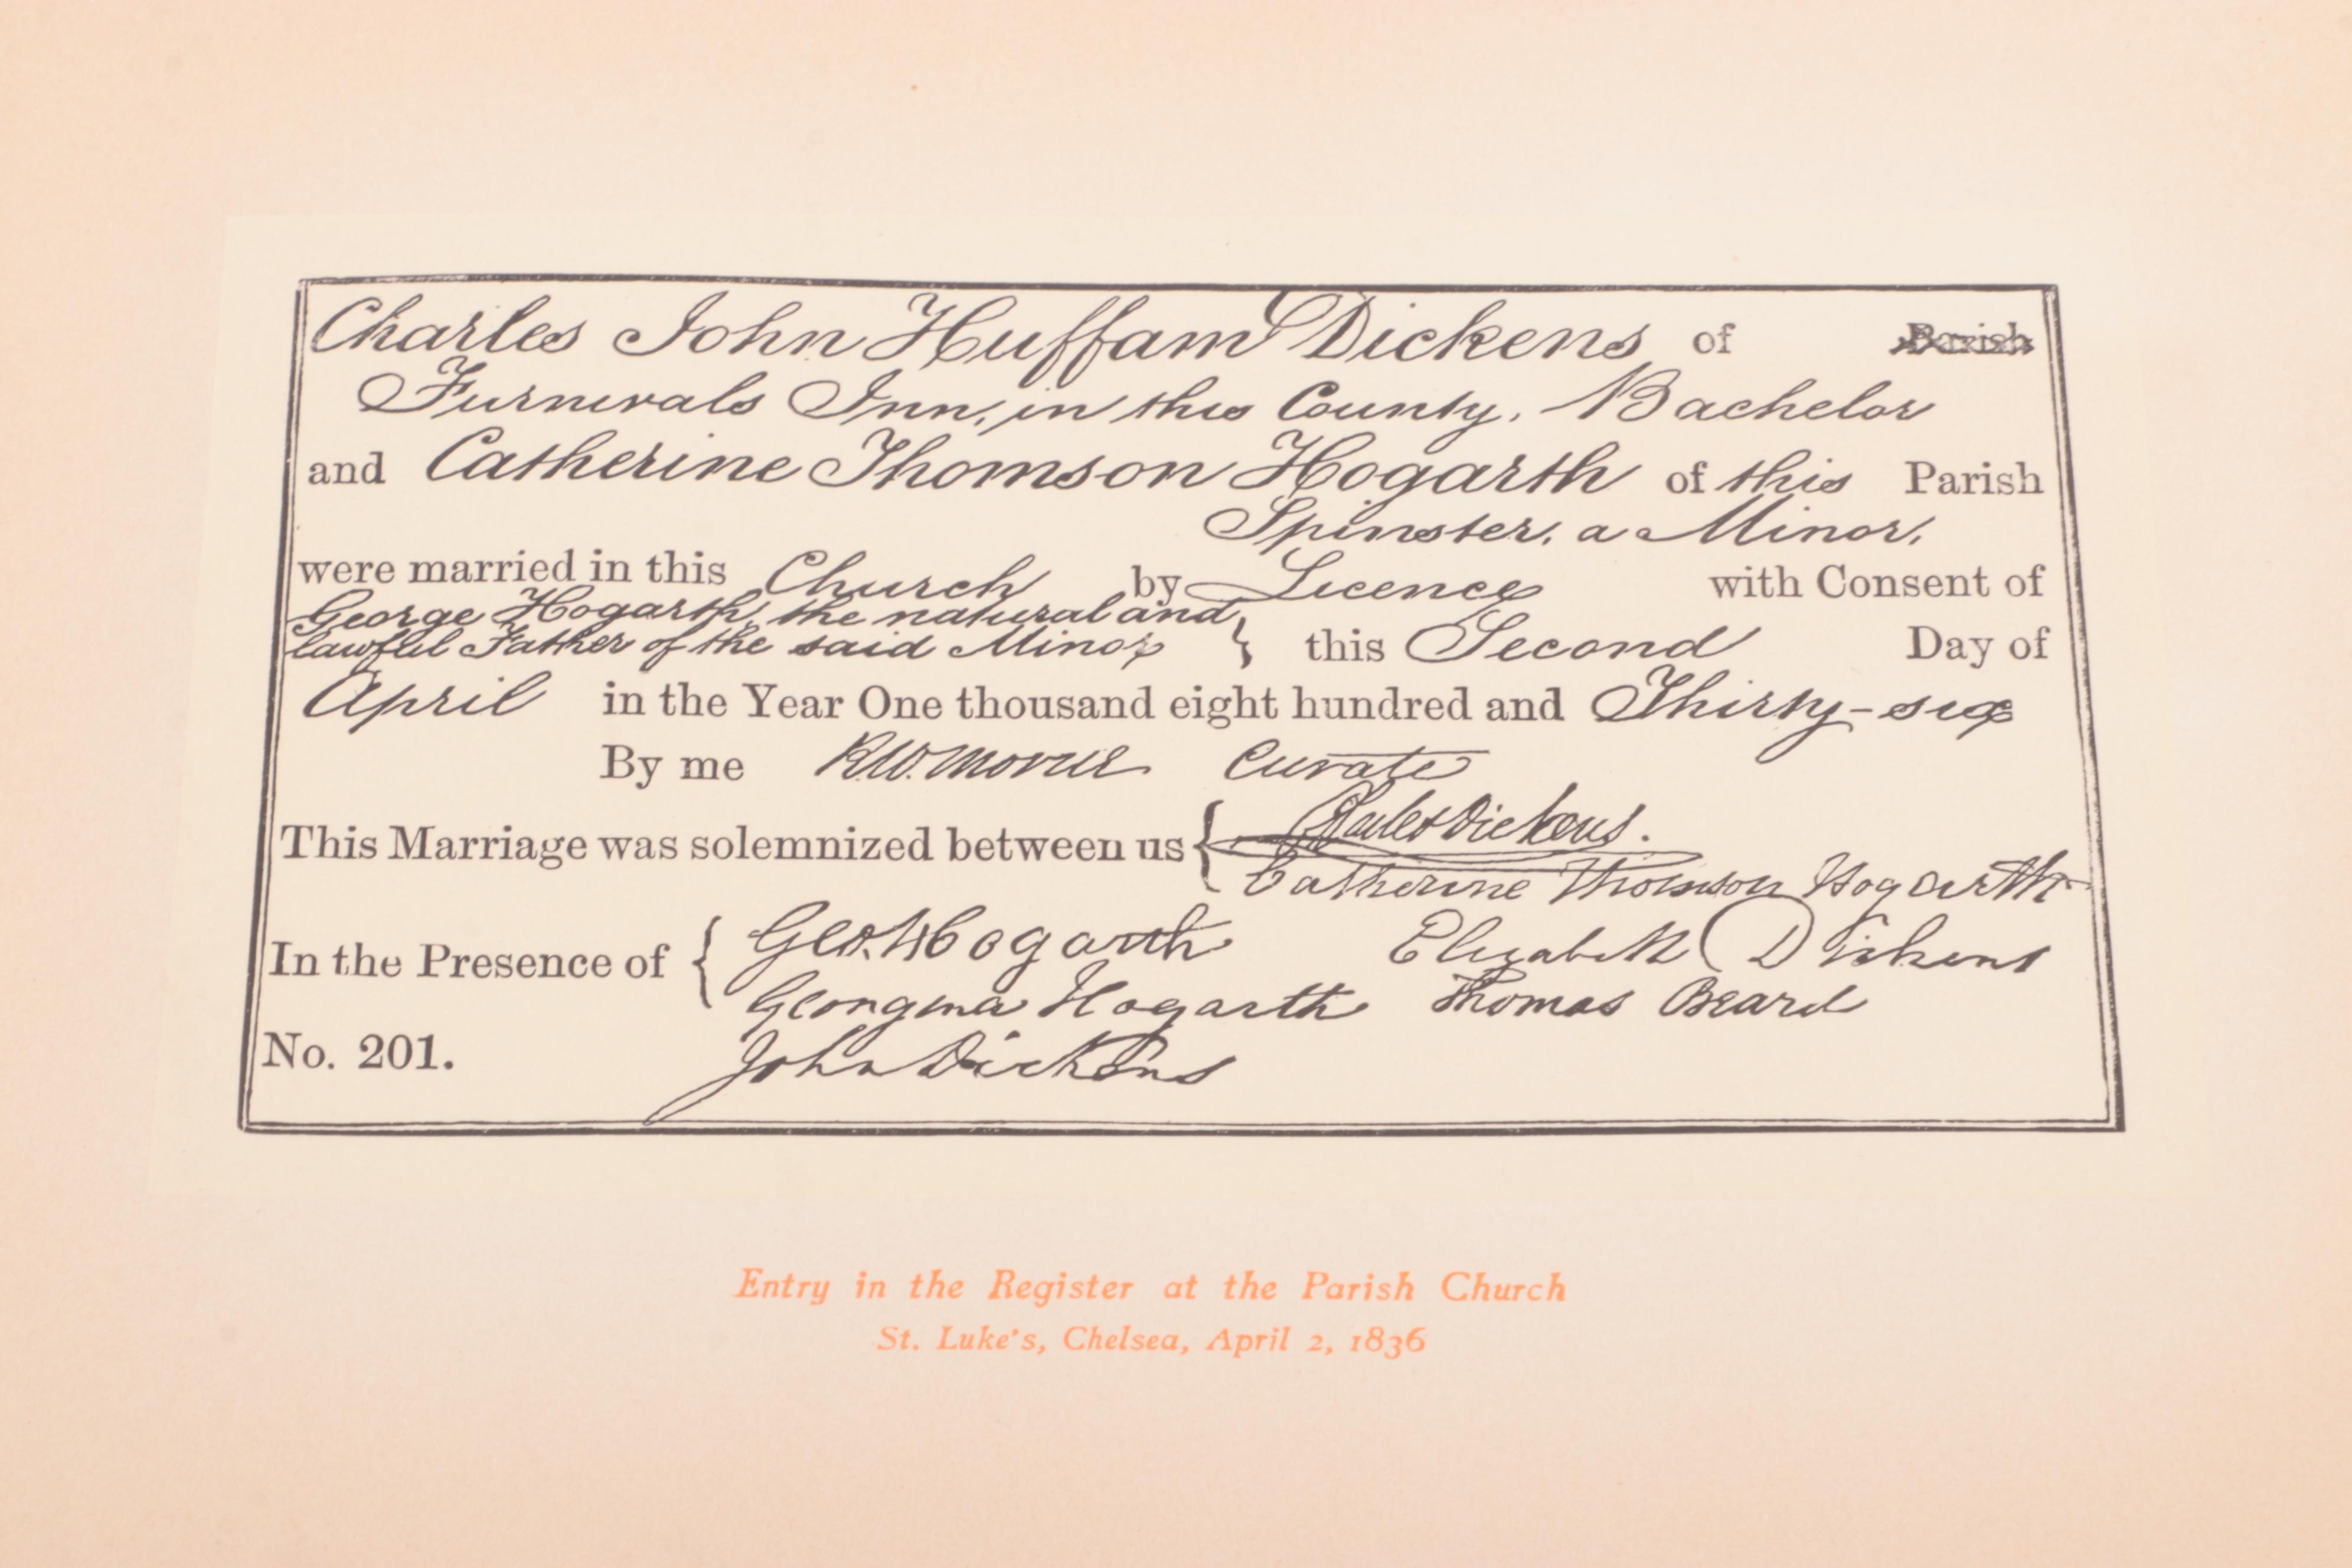 Charles John Huffam Dickens of Parish
Furnivals Inn, in this County, Bachelor
and Catherine Thomson Hogarth of this Parish
Spinster, a Minor,
were married in this Church by Licence with Consent of
George Hogarth, the natural and
lawful Father of the said Minor } this Second Day of
April in the Year One thousand eight hundred and Thirty-six
By me Curate
This Marriage was solemnized between us { Charles Dickens.
Catherine Thomson Hogarth
In the Presence of { Geo. Hogarth Elizabeth Dickens
Georgina Hogarth Thomas Beard
No. 201. John Dickens
Entry in the Register at the Parish Church
St. Luke's, Chelsea, April 2, 1836